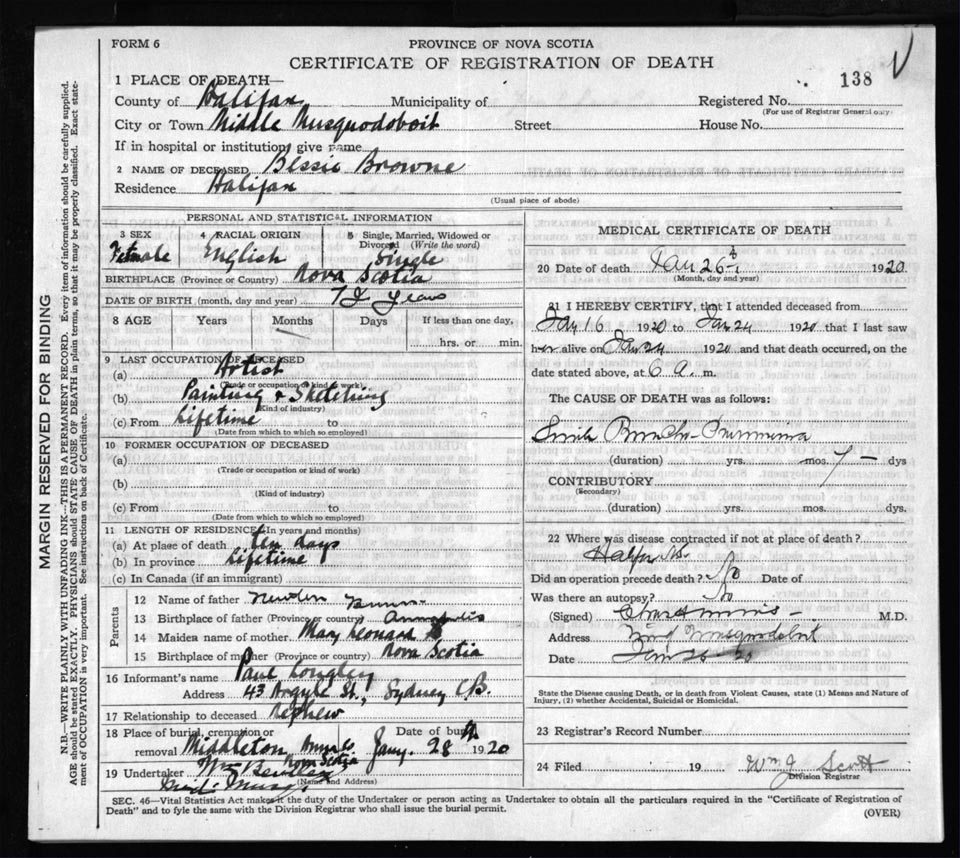 FORM 6
PROVINCE OF NOVA SCOTIA
CERTIFICATE OF REGISTRATION OF DEATH
138
1 PLACE OF DEATH—
County of Halifax Municipality of Registered No.
(For use of Registrar General only)
City or Town Middle Musquodoboit Street House No.
If in hospital or institution give name
2 NAME OF DECEASED Bessie Browne
Residence Halifax
(Usual place of abode)
PERSONAL AND STATISTICAL INFORMATION
3 SEX 4 RACIAL ORIGIN 5 Single, Married, Widowed or Divorced (Write the word)
Female English Single
BIRTHPLACE (Province or Country) Nova Scotia
DATE OF BIRTH (month, day and year) Years
8 AGE Years Months Days If less than one day,
hrs. or min.
9 LAST OCCUPATION OF DECEASED
(a) Artist
(Trade or occupation or kind of work)
(b) Painting & Sketching
(Kind of industry)
(c) From Lifetime to
(Date from which to which so employed)
10 FORMER OCCUPATION OF DECEASED
(a)
(Trade or occupation or kind of work)
(b)
(Kind of industry)
(c) From to
(Date from which to which so employed)
11 LENGTH OF RESIDENCE (In years and months)
(a) At place of death ten days
(b) In province Lifetime
(c) In Canada (if an immigrant)
Parents
12 Name of father
13 Birthplace of father (Province or country) Annapolis
14 Maiden name of mother Mary Leonard
15 Birthplace of mother (Province or country) Nova Scotia
16 Informant's name Paul Longley
Address 43 Argyle St., Sydney C.B.
17 Relationship to deceased nephew
18 Place of burial, cremation or removal Middleton Anna Co. Nova Scotia Date of burial Jany. 28 1920
19 Undertaker Wm
(Name and Address)
MEDICAL CERTIFICATE OF DEATH
20 Date of death Jan 26th 1920
(Month, day and year)
21 I HEREBY CERTIFY, that I attended deceased from
Jan 16 1920 to Jan 24 1920 that I last saw
her alive on Jan 24 1920 and that death occurred, on
date stated above, at 6 a. m.
The CAUSE OF DEATH was as follows:
Senile Broncho-Pneumonia
(duration) yrs. mos. 7 — dys
CONTRIBUTORY
(Secondary)
(duration) yrs. mos. dys.
22 Where was disease contracted if not at place of death?
Halifax
Did an operation precede death? No Date of
Was there an autopsy? No
(Signed) M.D.
Address Mid Musquodoboit
Date Jan 26 20
State the Disease causing Death, or in death from Violent Causes, state (1) Means and Nature of
Injury, (2) whether Accidental, Suicidal or Homicidal.
23 Registrar's Record Number
24 Filed 19 Wm J. Scott
Division Registrar
SEC. 46—Vital Statistics Act makes it the duty of the Undertaker or person acting as Undertaker to obtain all the particulars required in the "Certificate of Registration of
Death" and to fyle the same with the Division Registrar who shall issue the burial permit.
(OVER)
MARGIN RESERVED FOR BINDING
N.B.—WRITE PLAINLY WITH UNFADING INK—THIS IS A PERMANENT RECORD. Every item of information should be carefully supplied.
AGE should be stated EXACTLY. PHYSICIANS should STATE CAUSE OF DEATH in plain terms, so that it may be properly classified. Exact state-
ment of OCCUPATION is very important. See instructions on back of Certificate.